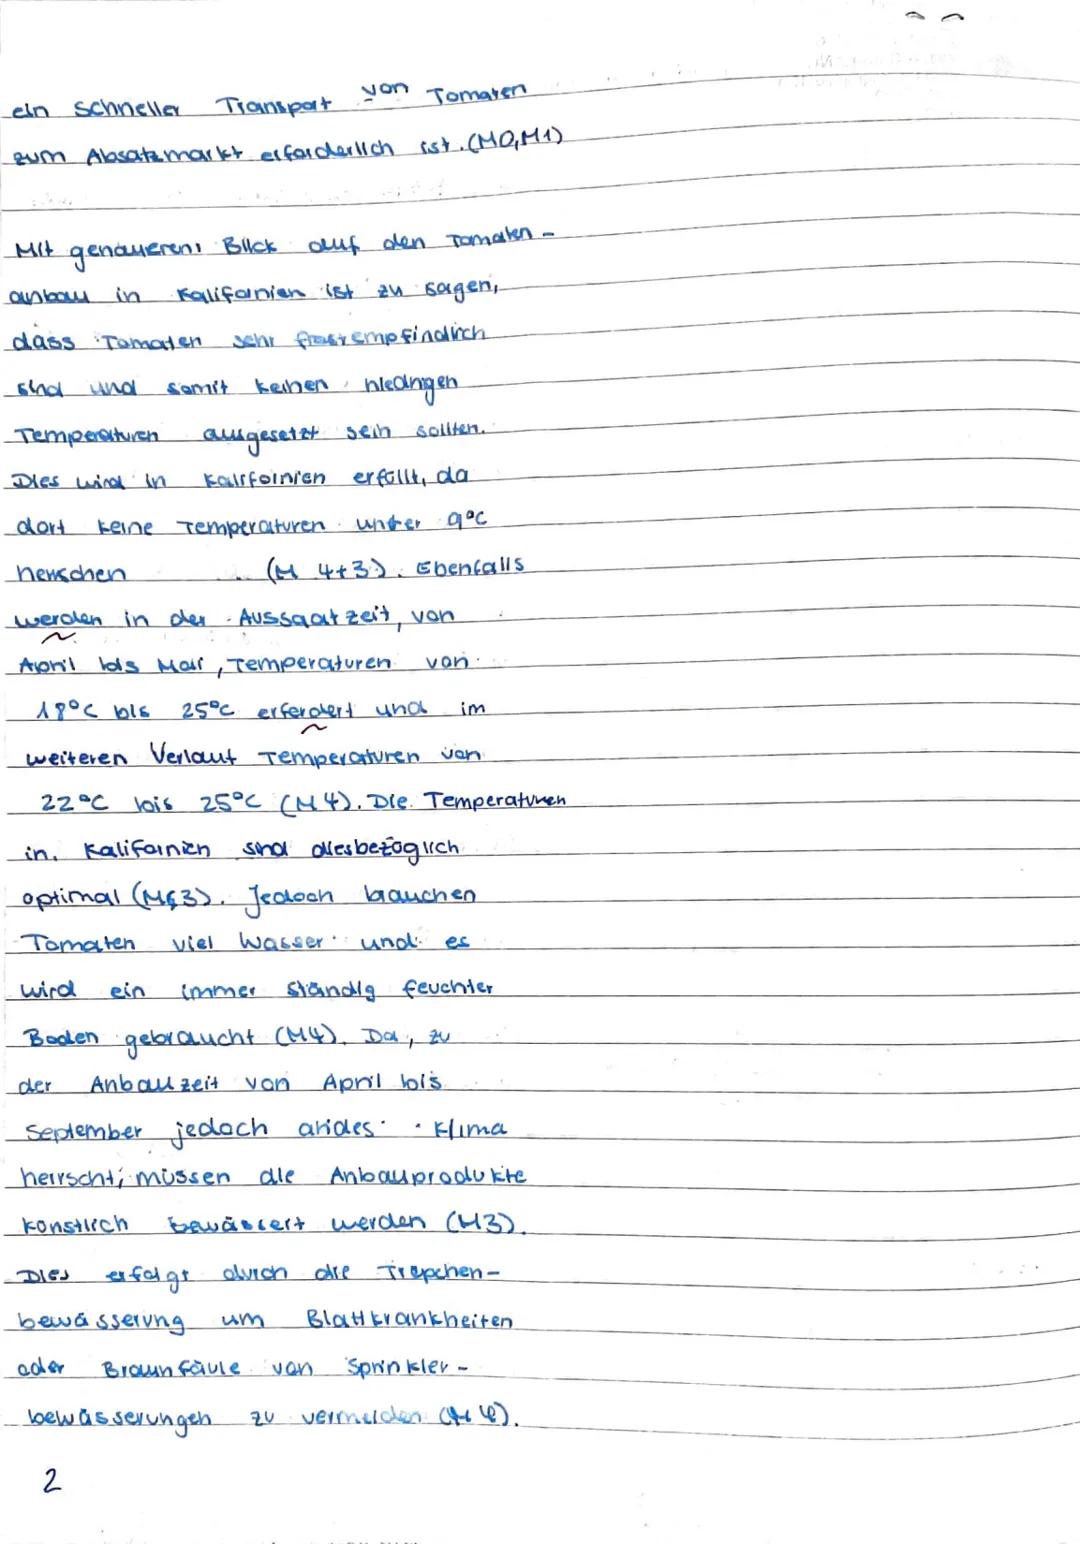 ein schneller Transport von Tomaten
zum Absatzmarkt erforderlich ist. (M0,M1)
Mit genaueren Blick auf den Tomaten-
anbau in Kalifornien ist zu sagen,
dass Tomaten sehr frostempfindlich
sind und somit keinen niedrigen
Temperaturen ausgesetzt sein sollten.
Dies wird in Kalifornien erfüllt, da
dort keine Temperaturen unter 9°C
herrschen (M 4+3). Ebenfalls
werden in der Aussaatzeit, von
April bis Mai, Temperaturen von
18°C bis 25°C erfordert und im
weiteren Verlauf Temperaturen von
22°C bis 25°C (M4). Die Temperaturen
in Kalifornien sind diesbezüglich
optimal (M&3). Jedoch brauchen
Tomaten viel Wasser und es
wird ein immer ständig feuchter
Boden gebraucht (M4). Da, zu
der Anbauzeit von April bis
September jedoch arides Klima
herrscht, müssen die Anbauprodukte
künstlich bewässert werden (M3).
Dies erfolgt durch die Tröpchen-
bewässerung um Blattkrankheiten
oder Braunfäule von Sprinkler-
bewässerungen zu vermeiden (M4).
2